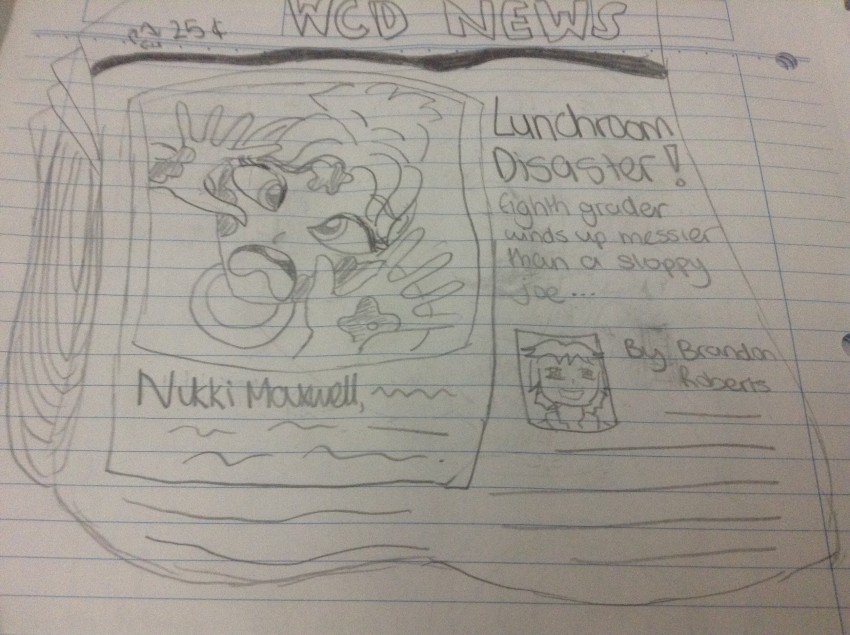 25¢
WCD NEWS
Lunchroom
Disaster!
Eighth grader
winds up messier
than a sloppy
joe...
By Brandon
Roberts
Nikki Maxwell,